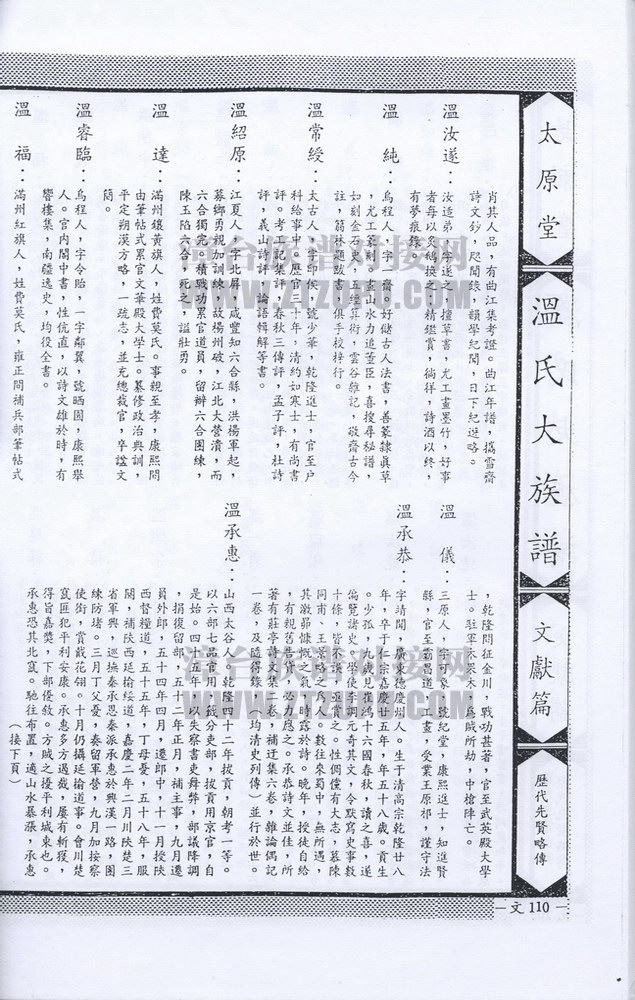 太原堂
溫氏大族譜
文獻篇
歷代先賢略傳
—文110—
肖其人品,有曲江集考證。曲江年譜,攜雪齋
詩文鈔,咫聞錄、韻學紀聞,日下紀遊略。
溫汝遂:汝造弟,字遂之,擅草書,尤工畫墨竹,好事
者每以炙鵝換之;精鑑賞,徜徉,詩酒以終,
有夢痕錄。
溫 純:烏程人,字一齋,好儲古人法書,善篆隸真草
,尤工篆刻。畫山水力追董臣,喜搜尋秘譜,
如刻金石史,五經算術,雲谷雜記,敬齋古今
註,翁林題跋書,俱手校梓行。
溫常綬:太古人,字印侯,號少華,乾隆進士,官至戶
科給事中。歷官三十年,清約如寒士,有尚書
評。考工記集評,春秋三傳評,孟子評,杜詩
評,義山詩評,論語輯解等書。
溫紹原:江夏人,字北屏,咸豐知六合縣,洪楊軍起,
募鄉勇親加訓練,故楊州破,江北大營潰,而
六合獨完。積戰功累官道員,留辦六合團練,
陳玉陷六合,死之,謚壯勇。
溫 達:滿州鑲黃旗人,姓費莫氏。事親至孝,康熙間
由筆帖式累官文華殿大學士。纂修政治典訓,
平定朔漠方略,一疏志,並充總裁官,卒諡文
簡。
溫睿臨:烏程人,字令貽,一字鄰翼,號哂園,康熙舉
人。官內閣中書,性伉直,以詩文雄於時,有
響樓集,南疆逸史,均役全書。
溫 福:滿州紅旗人,姓費莫氏,雍正間補兵部筆帖式
,乾隆間征金川,戰功甚著,官至武英殿大學
士。駐軍木果木,為賊所劫,中槍陣亡。
溫 儀:三原人,字可象,號紀堂,康熙進士,知進賢
縣,官至霸昌道,工畫,受業王原祁,謹守法
溫承恭:字靖聞,廣東德慶州人。生于清高宗乾隆廿八
年,卒于仁宗嘉慶廿五年,年五十八歲。貢生
。少孤,九歲見崔鴻十六國春秋,讀之喜,遂
偏覽諸史。學使李調元奇其文,令默寫史事數
十條,皆不誤,亟賞之。性倜儻有大志,慕陳
同甫,王景略之為人。數往來蜀中,無所遇,
其激昂慷慨之氣,時露於詩。晚年,授徒自給
,有親舊告貨,必力應之。承恭詩文並佳,所
著有莊亭詩文集二卷,補迂集六卷,雜論偶記
一卷,及隨得錄(均清史列傳)並行於世。
溫承惠:山西太谷人,乾隆四十二年拔貢,朝考一等。
以六部七品官用,籤分吏部,拔貢用京官,自
是始。四十五年,以失察書吏舞弊,部議降調
,捐復留部,五十二年正月,補主事,九月遷
員外郎,五十四年四月,遷郎中,十一月授陝
西督糧道,五十五年,丁母憂,五十八年,服
闋,補陝西延榆綏道,嘉慶二年二月川陝楚三
省軍興,巡撫秦承恩奏派承惠於興漢一路,團
練防堵。三月丁父憂,奏留軍營,九月加按察
使銜,賞戴花翎。十月仍攝延榆道事。會川楚
寇匪犯平利安康。承惠多方遏截,屢有斬獲,
得旨嘉獎,下部優敘。方賊之擾平利城東也。
承惠恐其北竄。馳往布置,適山水暴漲,承惠
(接下頁)